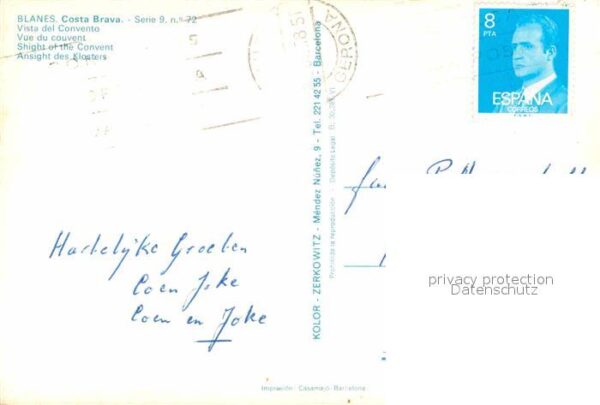 BLANES. Costa Brava. - Serie 9, n.º 72
Vista del Convento
Vue du couvent
Shight of the Convent
Ansight des Klosters
GERONA
8
PTA
ESPAÑA
CORREOS
Hartelijke Groeten
Coen Joke
Coen en Joke
KOLOR - ZERKOWITZ - Méndez Núñez, 9 - Tel. 221 42 55 - Barcelona
Prohibida la reproducción - Depósito Legal B.
privacy protection
Datenschutz
Impresión: Casamajó-Barcelona